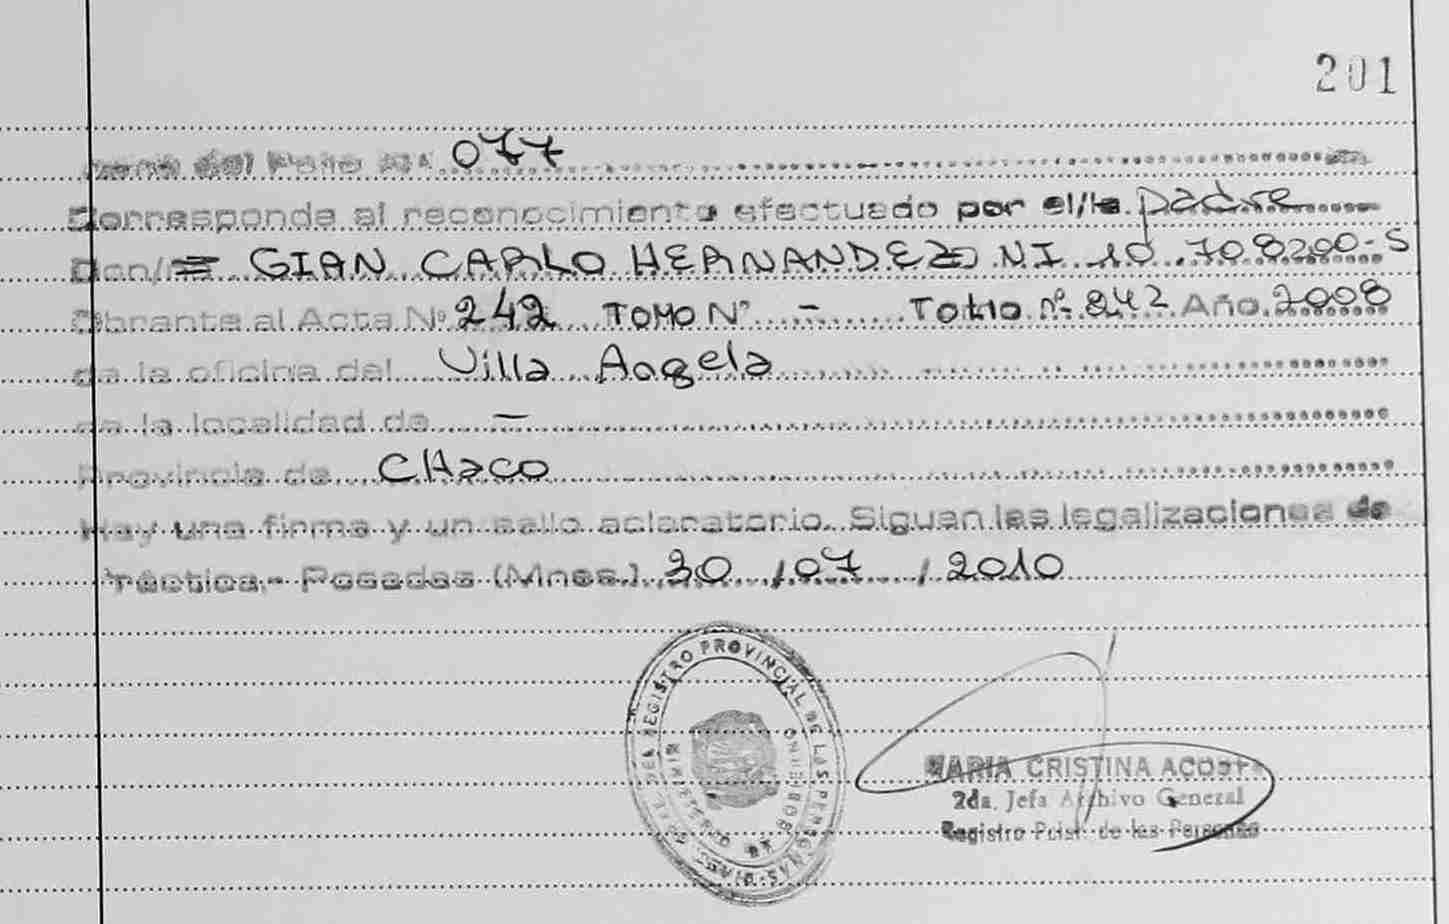 201
del Folio Nº 077
Corresponde al reconocimiento efectuado por el/la padre
Don/ GIAN CARLO HERNANDEZ NI 10.708200-S
Obrante al Acta Nº 242 TOMO Nº - Folio nº 242 Año 2008
de la oficina del Villa Angela
de la localidad de -
Provincia de CHaco
Hay una firma y un sello aclaratorio. Siguen las legalizaciones de
práctica.- Posadas (Mnes.) 30 / 07 / 2010
REGISTRO PROVINCIAL DE LAS PERSONAS
MINISTERIO DE GOBIERNO
MARIA CRISTINA ACOSTA
2da. Jefa Archivo General
Registro Pcial. de las Personas